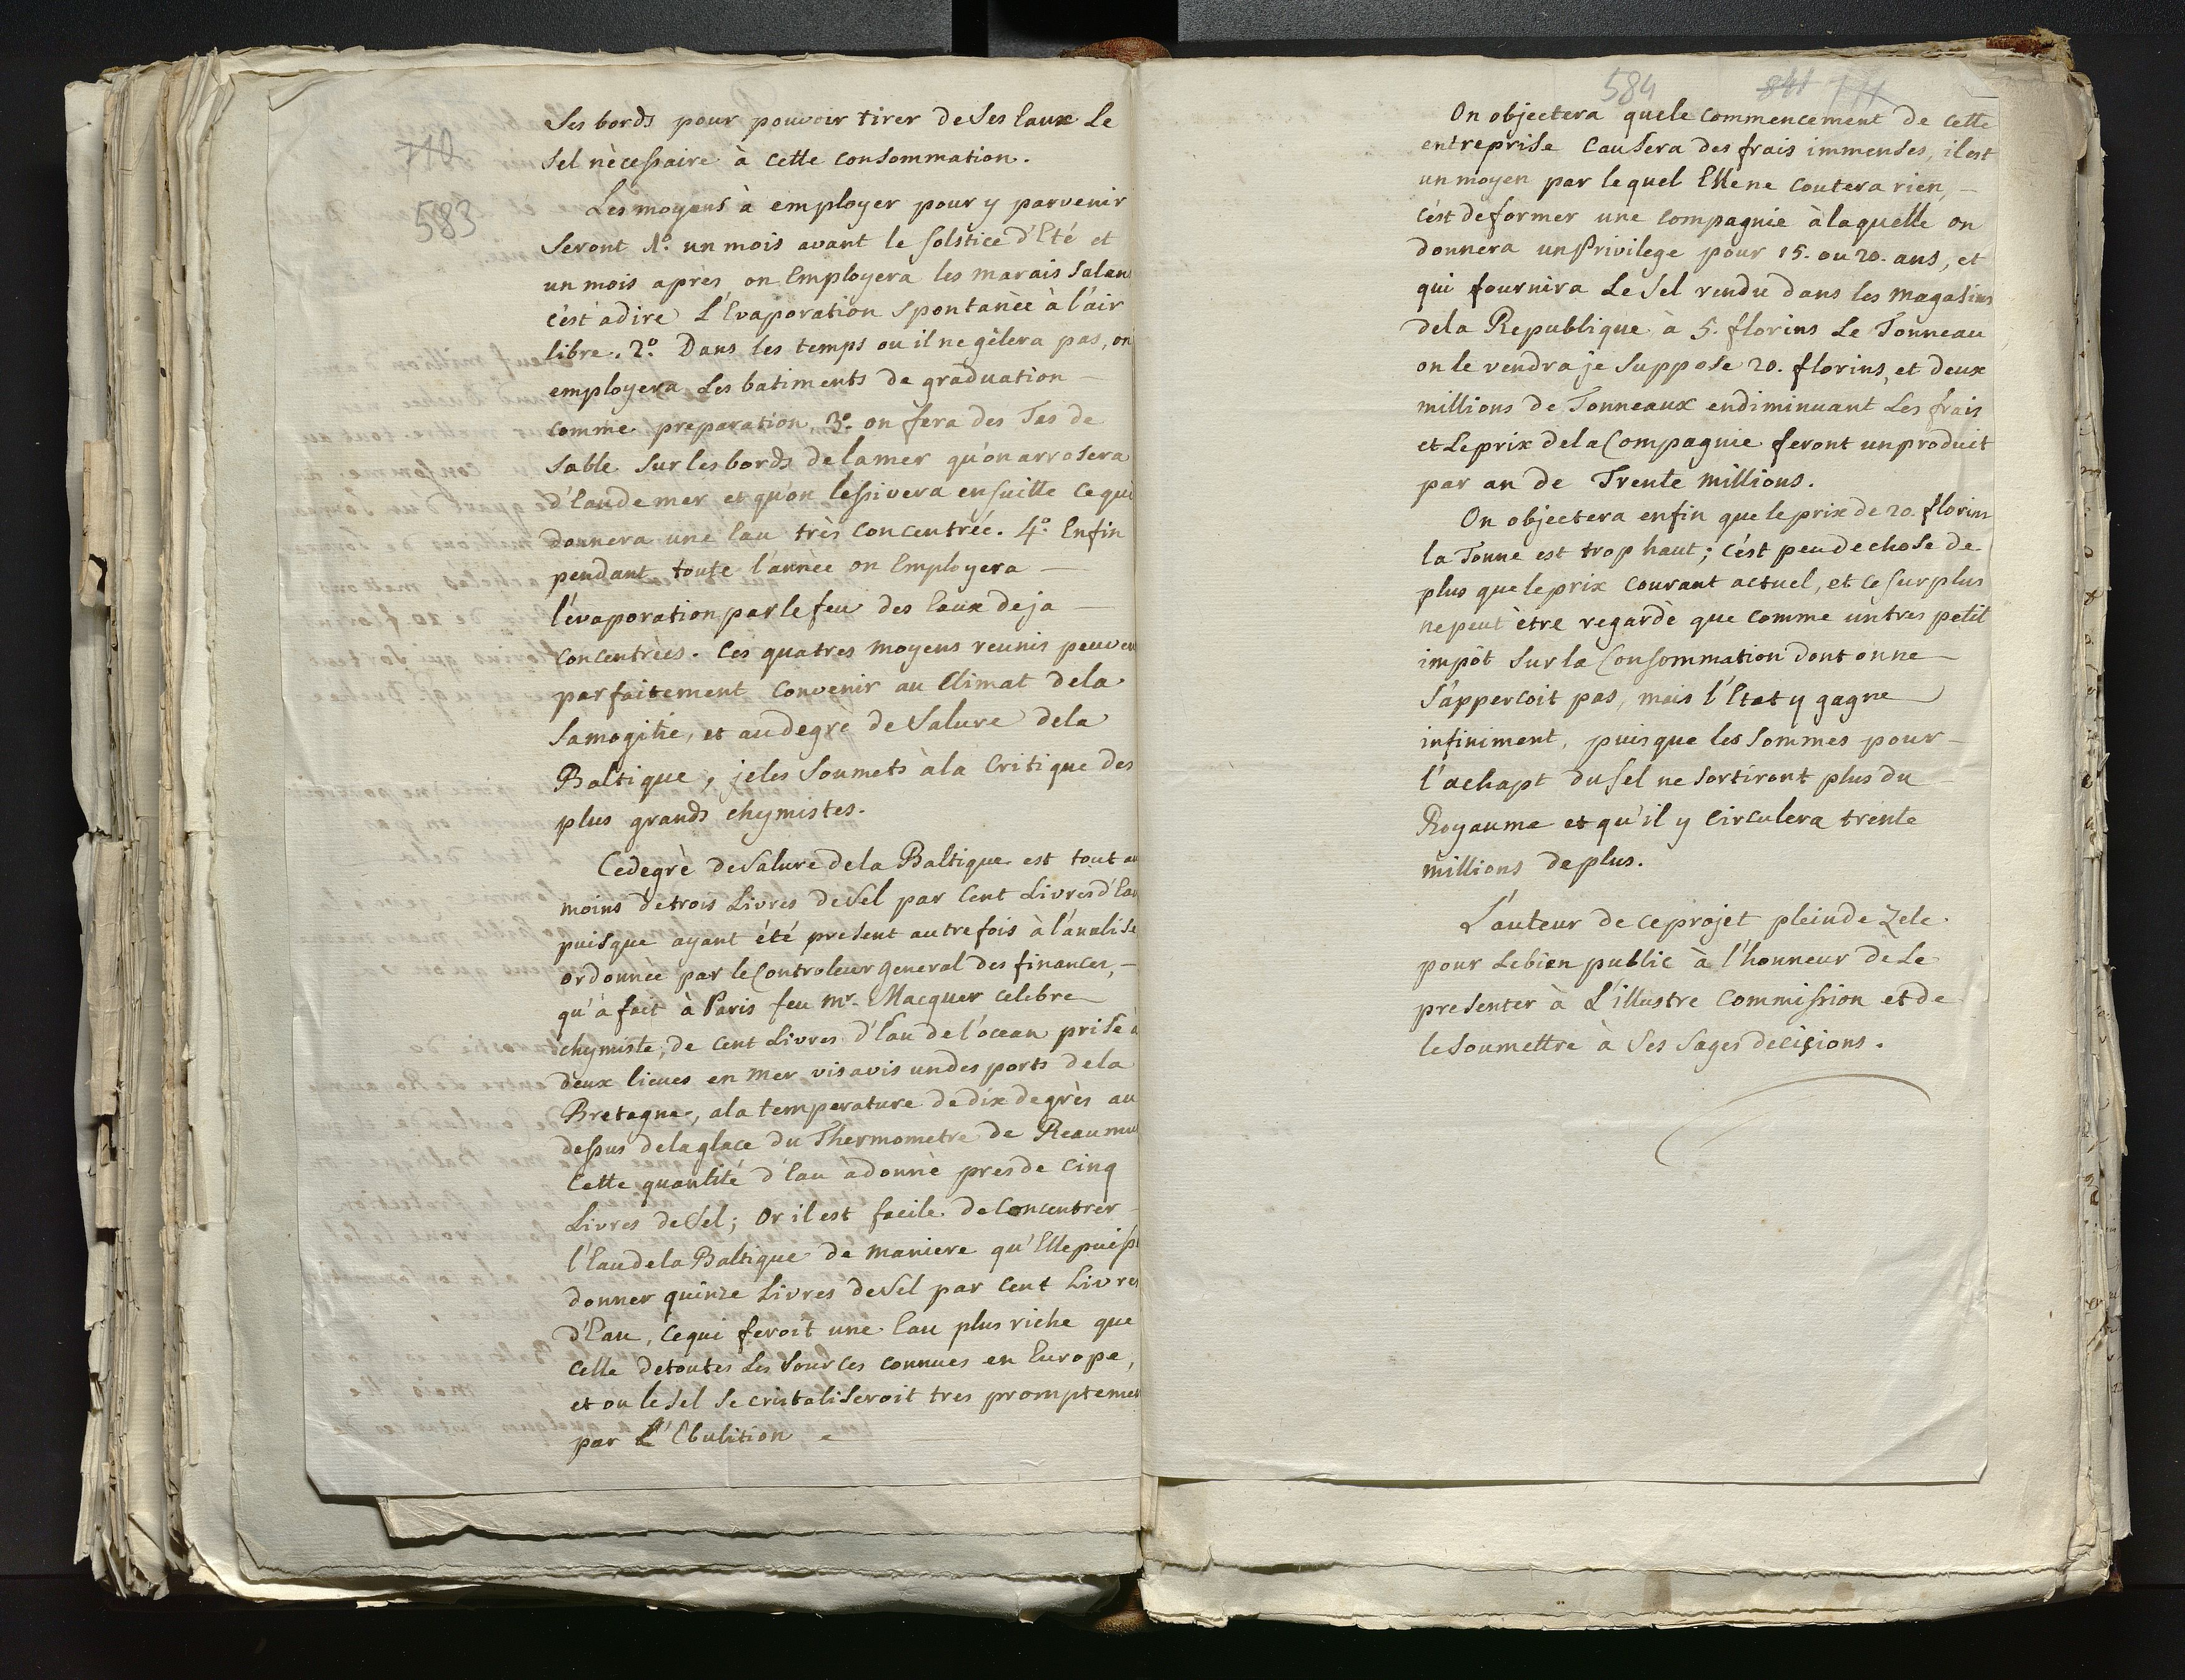 710
583
Ses bords pour pouvoir tirer de Ses Eaux Le
Sel nècessaire à cette consommation.
Les moyens à employer pour y parvenir
Seront 1º. un mois avant le solstice d'Eté et
un mois après on Employera les marais Salans
c'est adire L'Evaporation Spontanèe à l'air
libre. 2º. Dans les temps ou il ne gèlera pas, on
employera Les batiments de graduation —
comme preparation, 3º. on fera des Tas de
Sable Sur les bords de la mer qu'on arrosera
d'Eau de mer et qu'on lessivera ensuitte ce qui
donnera une Eau très concentrée. 4º. Enfin
pendant toute l'année on Employera —
l'évaporation par le feu des Eaux deja —
concentrèes. Ces quatres moyens reunis peuven
parfaitement convenir au Climat de la
Samogitie, et au degrè de Salure de la
Baltique, je les Soumets à la Critique des
plus grands chymistes.
Ce degrè de Salure de la Baltique est tout au
moins de trois Livres de Sel par Cent Livres d'Eau
puisque ayant été present autrefois à l'analise
ordonnée par le Controleur general des finances, —
qu'à fait à Paris feu Mr. Macquer celebre
chymiste, de Cent Livres d'Eau de l'ocean prise à
deux lieues en mer vis avis un des ports de la
Bretagne, a la temperature de dix degrès au
dessus de la glace du Thermometre de Reaumu
Cette quantité d'Eau à donnè pres de Cinq
Livres de Sel; Or il est facile de Concentrer —
l'Eau de la Baltique de maniere qu'Elle puiss
donner quinze Livres de Sel par Cent Livres
d'Eau, ce qui feroit une Eau plus riche que
Celle de toutes Les Sources connues en Europe,
et ou le Sel Se cristaliseroit tres promptemen
par L'Ebulition
584 841 711
On objectera que le commencement de cette
entreprise Causera des frais immenses, il est
un moyen par lequel Elle ne Coutera rien, —
c'est de former une Compagnie à laquelle on
donnera un Privilege pour 15. ou 20. ans, et
qui fournira Le Sel rendu dans les magasins
de la Republique à 5. florins Le Tonneau
on le vendra je Suppose 20. florins, et deux
millions de Tonneaux en diminuant Les frais
et Le prix de la Compagnie feront un produit
par an de Trente millions.
On objectera enfin que le prix de 20. florins
la Tonne est trop haut; c'est peu de chose de
plus que le prix Courant actuel, et ce surplus
ne peut ètre regardè que Comme un tres petit
impôt Sur la Consommation dont on ne —
S'appercoit pas, mais l'Etat y gagne
infiniment, puisque les Sommes pour —
l'achapt du sel ne Sortiront plus du
Royaume et qu'il y Circulera trente
millions de plus.
L'auteur de ce projet plein de Zele
pour Le bien public à l'honneur de Le
presenter à L'illustre Commission et de
le Soumettre à Ses Sages decisions.